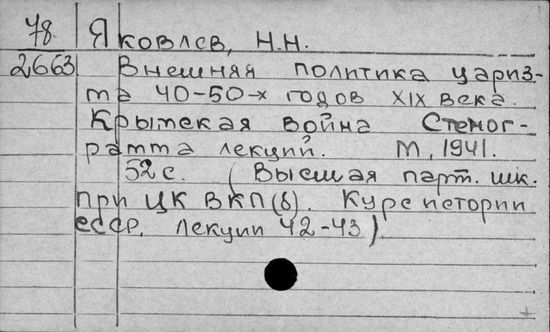 78 Яковлев, Н.Н.
2663 Внешняя политика цариз-
ма 40-50-х годов XIX века.
Крымская война Стеног-
рамма лекций. М, 1941.
52 с. (Высшая парт. шк.
при ЦК ВКП(б). Курс истории
СССР. Лекции 42-43)